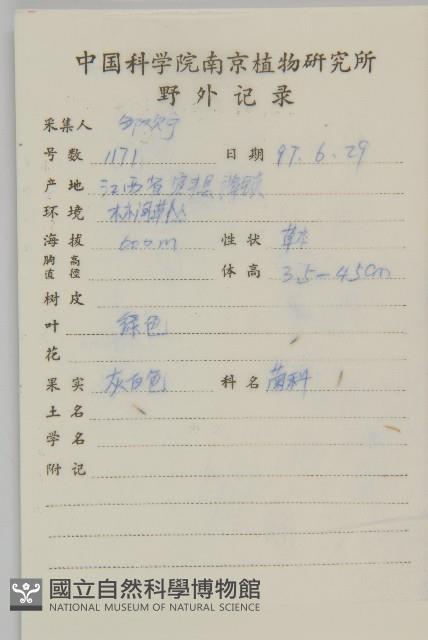 中国科学院南京植物研究所
野外记录
采集人
号数 1171 日期 97.6.29
产地 江西省
环境 林间草丛
海拔 600m 性状 草本
胸高直径 体高 35-45cm
树皮
叶 绿色
花
果实 灰白色 科名
土名
学名
附记
國立自然科學博物館
NATIONAL MUSEUM OF NATURAL SCIENCE